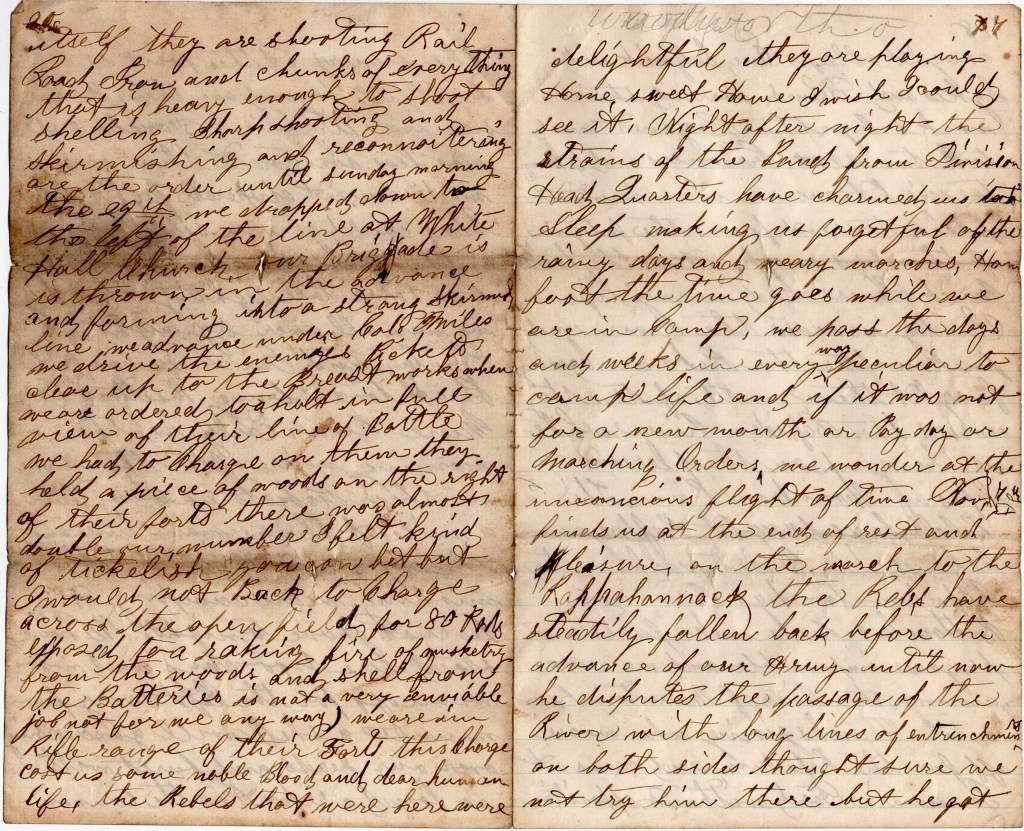 itself they are shooting Rail
Road Iron and chunks of every thing
that is heavy enough to shoot
shelling Sharpshooting and
skirmishing and reconnoitering
are the order until sunday morning
the 29th we dropped down to
the left of the line at White
Hall Church our Brigade is
is thrown in the advance
and forming into a strong skirmish
line we advance under Col Miles
we drive the enemies Pickets
clear up to the Breast works when
we are ordered to a halt in full
view of their line of Battle
we had to Charge on them they
held a piece of woods on the right
of their forts there was almost
double our number I felt kind
of tickelish you can bet but
I would not Back to Charge
across the open field for 80 Rods
exposed to a raking fire of musketry
from the woods and shell from
the Batteries is not a very enviable
job not for me any way) we are in
Rifle range of their Forts this Charge
cost us some noble Blood and dear human
life, the Rebels that were here were
37
delightful they are playing
Home, sweet Home I wish I could
see it, Night after night the
strains of the Band from Division
Head Quarters have charmed us to
Sleep making us forgetful of the
rainy days and weary marches, How
fast the time goes while we
are in Camp, we pass the days
and weeks in every way peculiar to
camp life and if it was not
for a new month or Pay day or
Marching Orders, we wonder at the
unconcious flight of time Nov 7th
finds us at the end of rest and
Pleasure, on the march to the
Rappahannack the Rebs have
steadily fallen back before the
advance of our Army until now
he disputes the passage of the
River with long lines of entrenchments
on both sides thought sure we
not try him there but he got